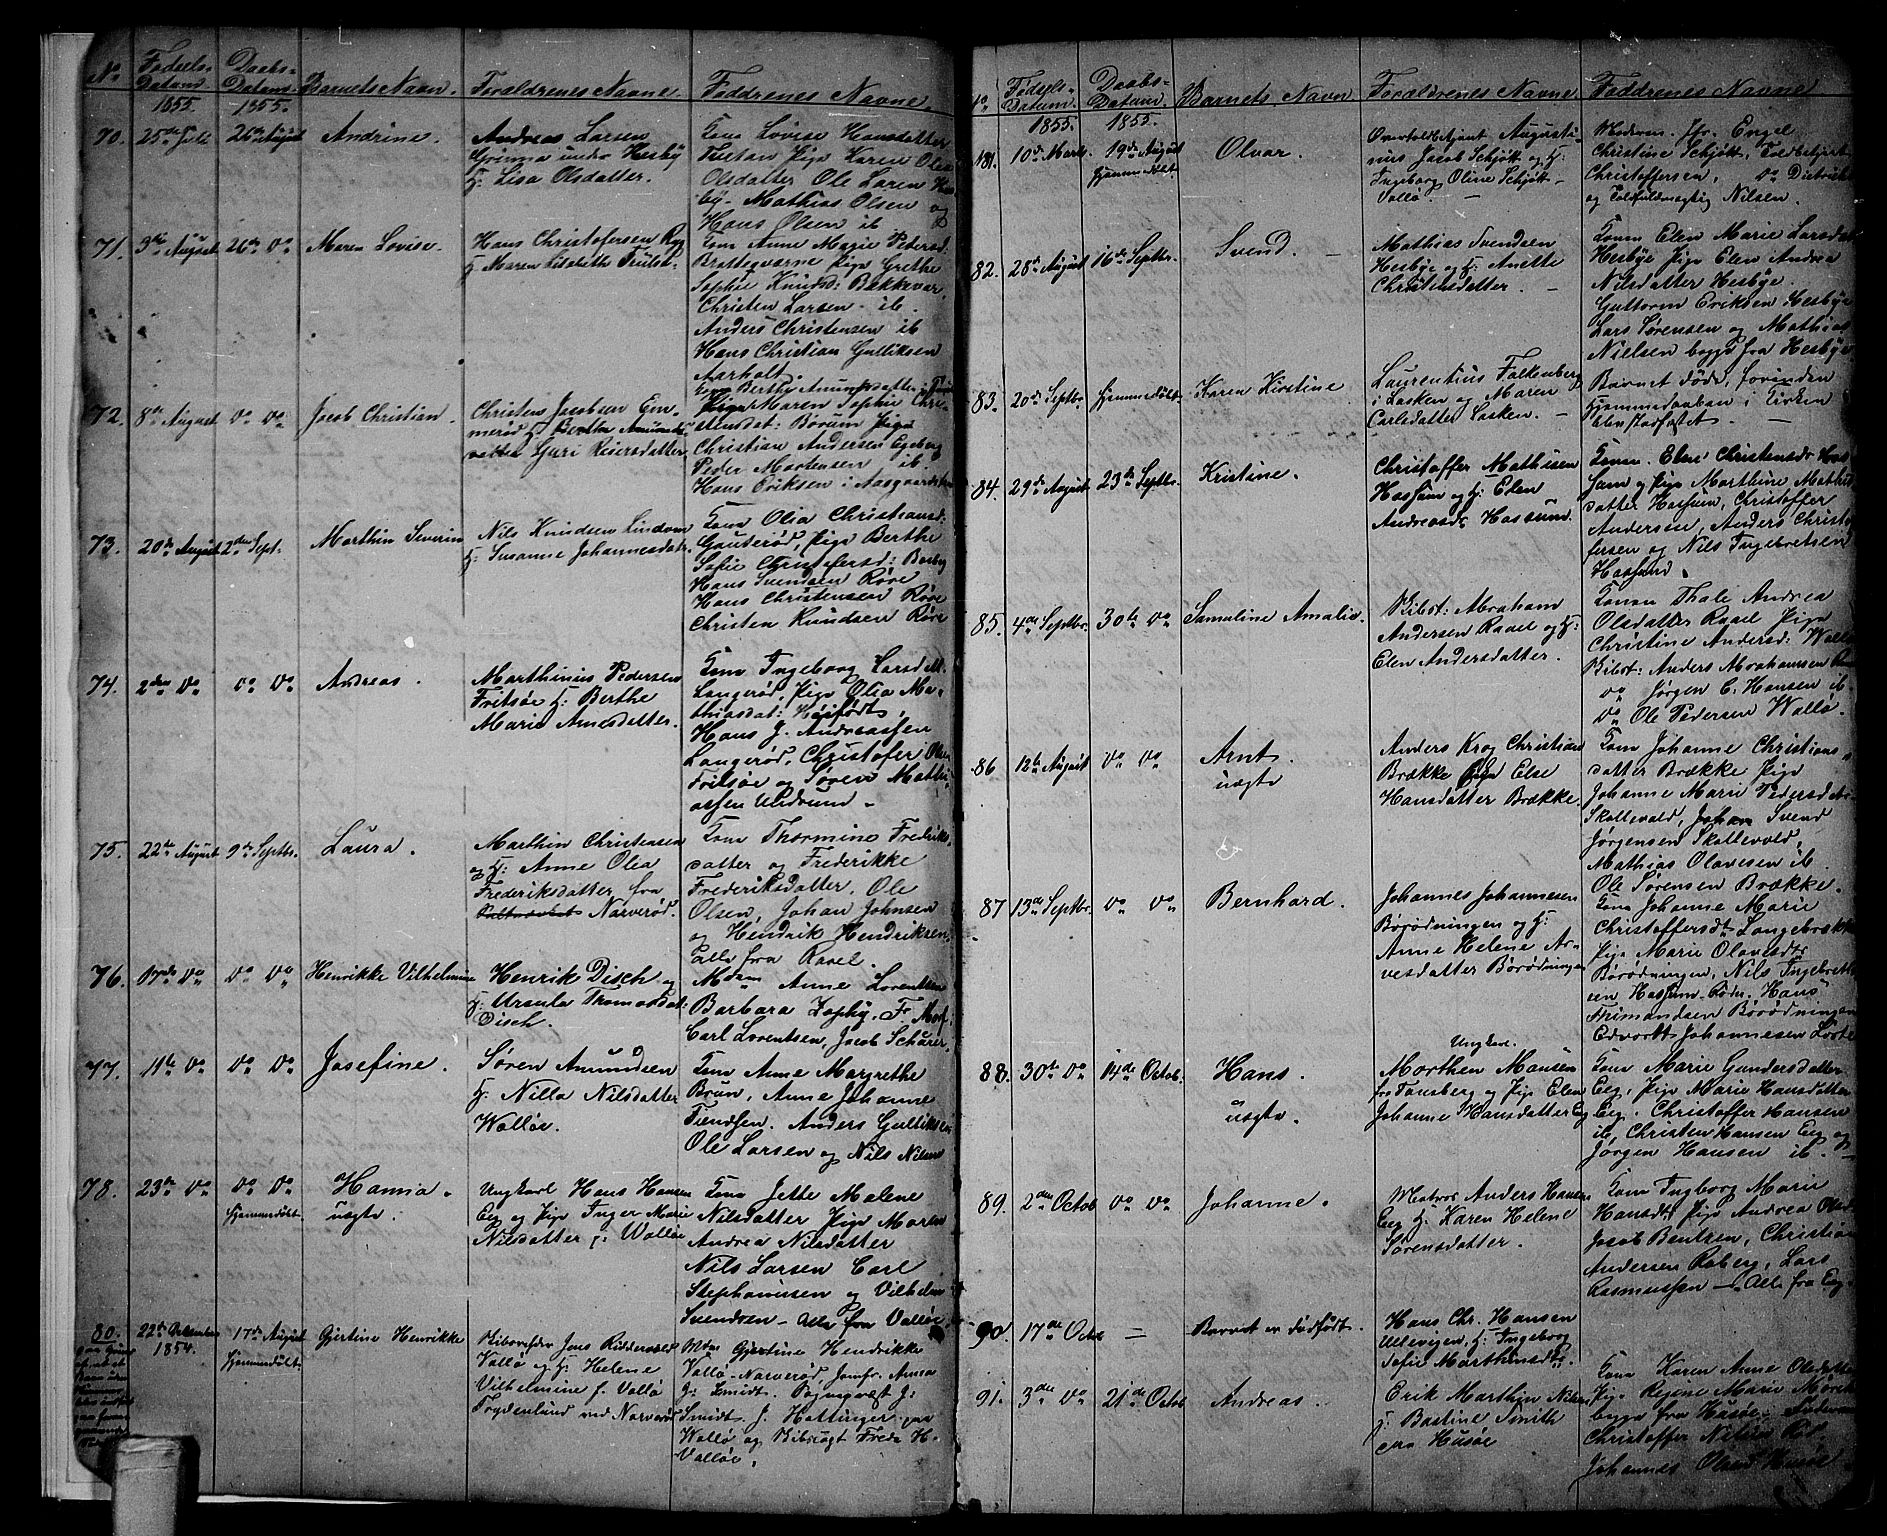 No Fødsels-Datum Daabs-Datum Barnets Navn. Forældrenes Navne Faddrenes Navne
1855. 1855.
70. 25de Juli 26de August Andrine. Andreas Larsen
Grimma under Hesby
H: Lisa Olsdatter.
Kona Lovise Hansdatter
Tustan Pige Karen Olea
Olsdatter Ole Laren
by- Mathias Olsen og
Hans Olsen ib
71. 3die August 26de do Maren Lovise. Hans Christofersen
H Maren Elisabeth
Kona Anne Marie Pedersd
Brattegværne Pige Grethe
Sophie Knudsd: Bakkevar,
Christen Larsen - ib.
Anders Christensen ib
Hans Christian Gulliksen
Aarholt.
72. 8de August do do Jacob Christian. Christen Jacobsen Gem-
merød H:
Guri Reiersdatter
Kona Berthe Amundsdatter
Pige Maren Sophie Chri-
stiansdat: Borum Pige
Christian Andersen Egeberg
Peder Mortensen ib.
Hans Eriksen i Aasgaardstrand
73. 20de August 2den Sept. Marthin Severin Nils Knudsen Lindom
H: Susanne Johannesdatr
Kona Olia Christiansd:
Gauterød, Pige Berthe
Sofie Christofersd: Basby
Hans Svendsen Røre
Hans Christensen Røre
Christen Knudsen Røre
74. 2den do do do Andreas. Marthinus Pedersen
Fritsøe H: Berthe
Marie Arnesdatter.
Kona Ingeborg Larsdatt.
Langerød, Pige Olia Ma-
thiasdat: Høifødt,
Hans J. Andreassen
Langerød, Christofer Olsen
Fritsøe og Søren Mathi-
assen Undrum -
75. 22de August 9de Septbr. Laura. Marthin Christensen
og H: Anne Olea
Frederiksdatter fra
Narverød.
Kona Thormine Frederiks-
datter og Frederikke
Frederiksdatter. Ole
Olsen, Johan Johnsen
og Hendrik Hendriksen
alle fra Ravel.
76. 17de do do do Henrikke Vilhelmine Henrik Disch og
H: Ursula Thomasdat:
Disch.
Mdm Anne Lorentsen
Barbara Zophy. Fr
Carl Lorentsen, Jacob Schärer
77. 11te do do do Josefine. Søren Amundsen
H: Nilla Nilsdatter
Walløe.
Kona Anne Margrethe
Brun, Anne Johanne
Tiendsen. Anders Gulliksen
Ole Larsen og Nils Nilsen
78. 23de do do do Hanna. Ungkarl Hans Hansen
Hjemmedøbt uægte. Eeg og Pige Inger Marie
Nilsdatter i Walløe
Kona Jette Malene
Nilsdatter Pige Maren
Andrea Nilsdatter
Nils Larsen Carl
Stephansen og Vilhelm
Svendsen - Alle fra Valløe
80. 22de October 1854. 17de August Gjertine Henrikke
Hjemmedøbt
Jens Riddervold
Vallø og H: Helene
Vilhelmine f. Vallø
Frydenlund ved Narverød
Mdm Gjertine Hendrikke
Vallø-Narverød, Jomfr. Anna
J: Smidt. J:
Smidt. J. Hattinger paa
Wallø og Freds H.
Valløe,
No Fødsels-Datum Daabs-Datum Barnets Navn Forældrenes Navne Faddrenes Navne
1855. 1855.
181. 10de Marts 19de August Olvar. Overtoldbetjent Augusti-
Hjemmedøbt
nus Jacob Schjött og H:
Ingeborg Oline Schjött -
Vallø. -
Moderen. Jfr. Engel
Christine Schjött, Toldbetjent
Christoffersen, do
og Toldfuldmægtig Nilsen.
82. 28de August 16de Septbr. Svend. - Mathias Svendsen
Hesbye og H: Anette
Christensdatter. -
Konen Elen Marie Larsdat
Hesbye Pige Elen Andrea
Nilsdatter Hesbye.
Guttorm Eriksen Hesbye
Lars Sørensen og Mathias
Nielsen begge fra Hesbye
83. 20de Septbr. Hjemmedøbt. Karen Kirstine Laurentius Falkenberg
i Lasken og Maren
Carlsdatter Lasken. -
Barnet døde, forinden
Hjemmedaaben i Kirken
blev stadfæstet. -
84. 29de August 23de Septbr. Kristine. Christoffer Mathisen
Hassum og H: Elen
Andreasdr Hassum.
Konen. Elen Christensdr Has-
sum og Pige Marthine Mathis
datter Hassum, Christoffer
Andersen, Anders Christ
fersen og Nils Ingebretsen
Hassund.
85. 4de Septbr. 30te do Samuline Amalie. Abraham
Andersen Ravel og H:
Elen Andersdatter.
Konen Thale Andrea
Olsdatter Ravel Pige
Christine Andersd: Wallø
Anders Abrahamsen
do Jørgen C. Hansen ib.
do Ole Pedersen Wallø.
86 12te August do do Arnt. Anders Krog Christian
uægte Brække Pige Else
Hansdatter Brække.
Kona Johanne Christians-
datter Brække Pige
Johanne Marie Pedersdat-
Skallevald, Johan Svend
Jørgensen Skallevald,
Mathias Olavesen ib.
Ole Sørensen Brække.
87 13de Septbr. do do Bernhard. Johannes Johannesen
Børødningen og H:
Anne Helene Ar-
vesdatter Børødningen
Kona Johanne Marie
Christoffersdt Langebrække
Pige Marie Olavesdtr
Børødningen, Nils Ingebret-
sen Hassum Hans
Frimandsen Børødningen
Edvardt Johannesen
88. 30te do 14de Octob. Hans. Ungkarl.
uægte Morthen Mansen
fra Tønsberg og Pige Elen
Johanne Hansdatter Eeg
Kona Marie Gundersdatter
Eeg, Pige Marie Hansdatter
Eeg. Christoffer Hansen
ib, Christen Hansen Eeg og
Jørgen Hansen ib.
89. 2den Octob do do Johanne. Matros Anders Hansen
Eeg H: Karen Helene
Sørensdatter.
Kona Ingborg Marie
Hansdt, Pige Andrea Olsd
Jacob Bentzen, Christian
Andersen Roberg, Lars
Rasmussen - Alle fra Eeg -
90. 17de Octob - Barnet er dødfødt. Hans Chr. Hansen
Ullevigen, H: Ingeborg
Sofie Marthinsdtr.
91. 3die do 21de Octob Andreas. Erik Marthin Nilsen
H: Bastine Smith
paa Husøe
Kona Karen Anne Olsdatter
Pige Regine Marie
begge fra Husøe -
Christoffer Nilsen
Johannes Olsen Husøe